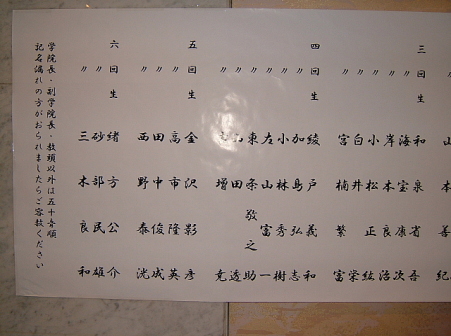 三回生 和泉省吾
〃 海宝康次
〃 岸本良治
〃 小松正絃
〃 白井栄
〃 宮楠繁富
四回生 綾戸義和
〃 加島弘志
〃 小林秀樹
〃 左山富一
〃 東条敬之助
〃 山田透
〃 増
五回生 金沢影彦
〃 高市隆英
〃 田中俊成
〃 西野泰洸
六回生 緒方公介
〃 砂部民雄
〃 三木良和
学院長・副学院長・教頭以外は五十音順
記名漏れの方がおられましたらご容赦ください